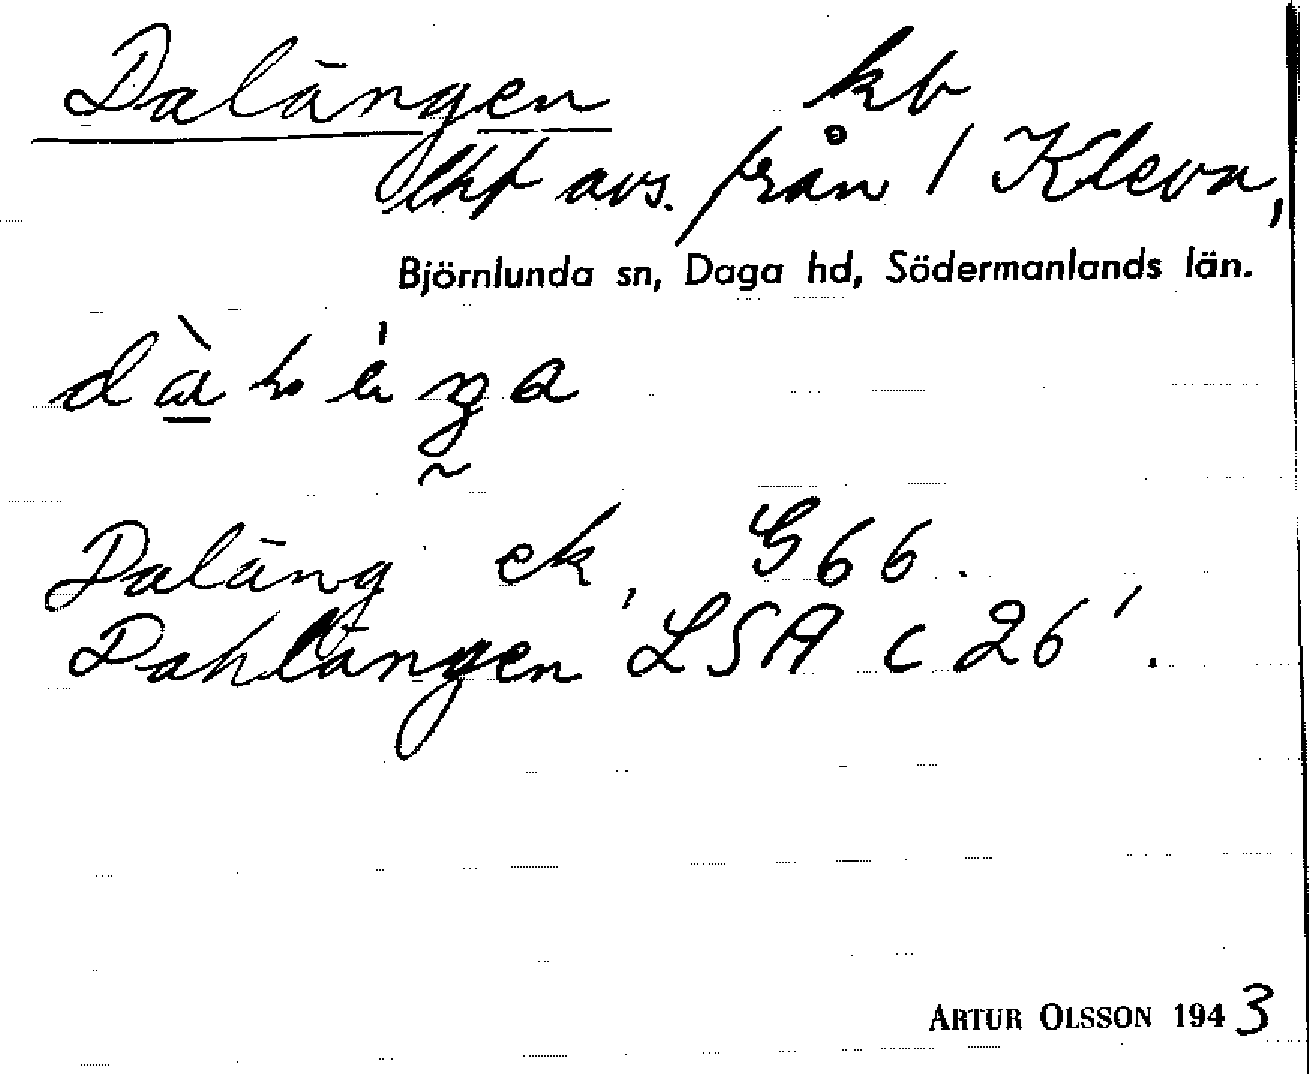 Dalängen kb
lht avs. från 1 Kleva,
Björnlunda sn, Daga hd, Södermanlands län.
Daläng ek, G66.
Dahlängen LSA c 26'.
ARTUR OLSSON 1943